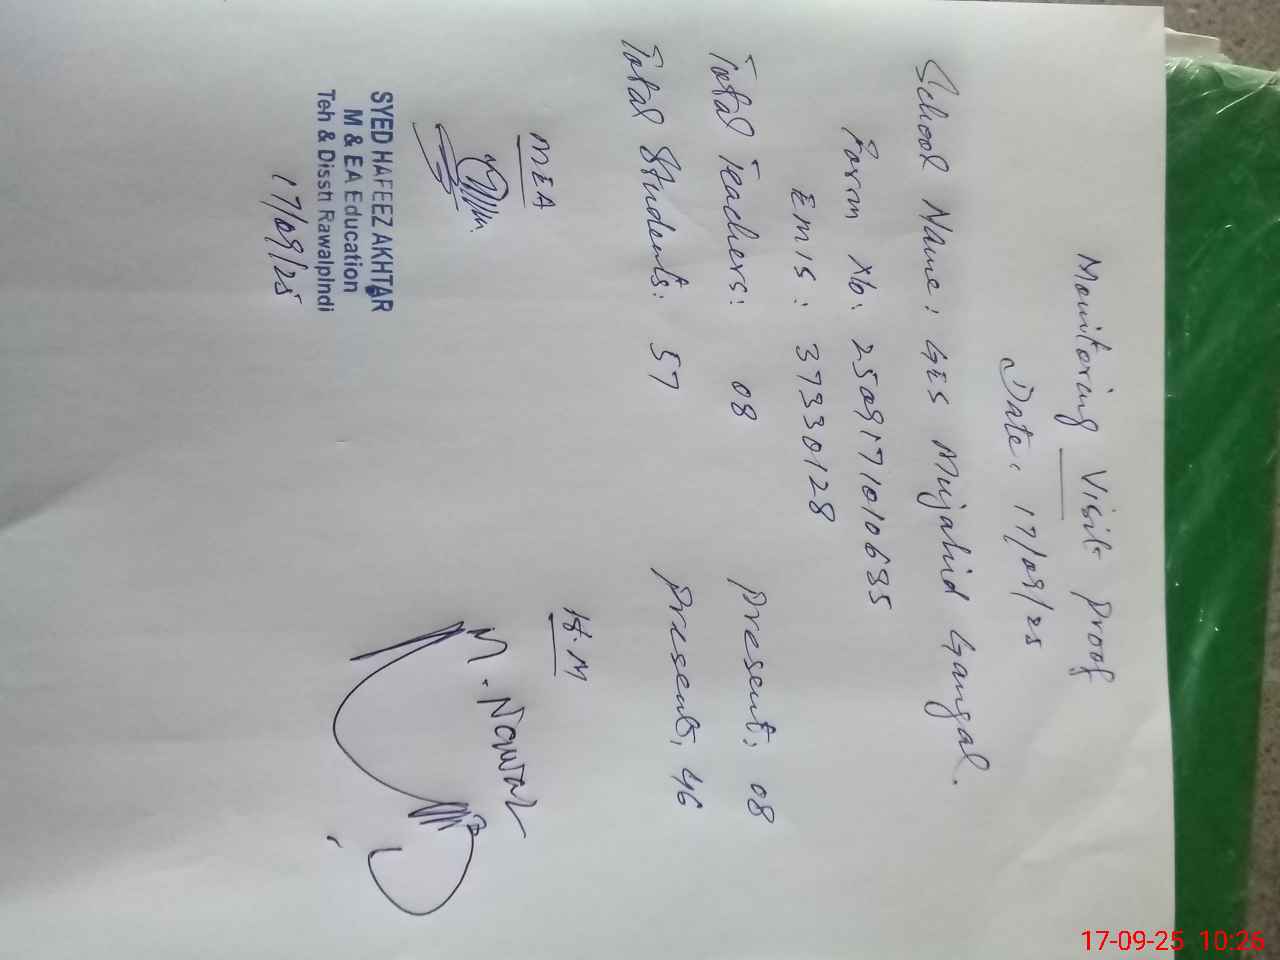 Monitoring Visit Proof
Date: 17/09/25
School Name: GES Mujahid Gangal.
Form No: 2509171010635
EMIS: 37330128
Total Teachers: 08 Present: 08
Total Students: 57 Present: 46
MEA H.M
M. Nawaz
SYED HAFEEZ AKHTAR
M & EA Education
Teh & Disstt Rawalpindi
17/09/25
17-09-25 10:26